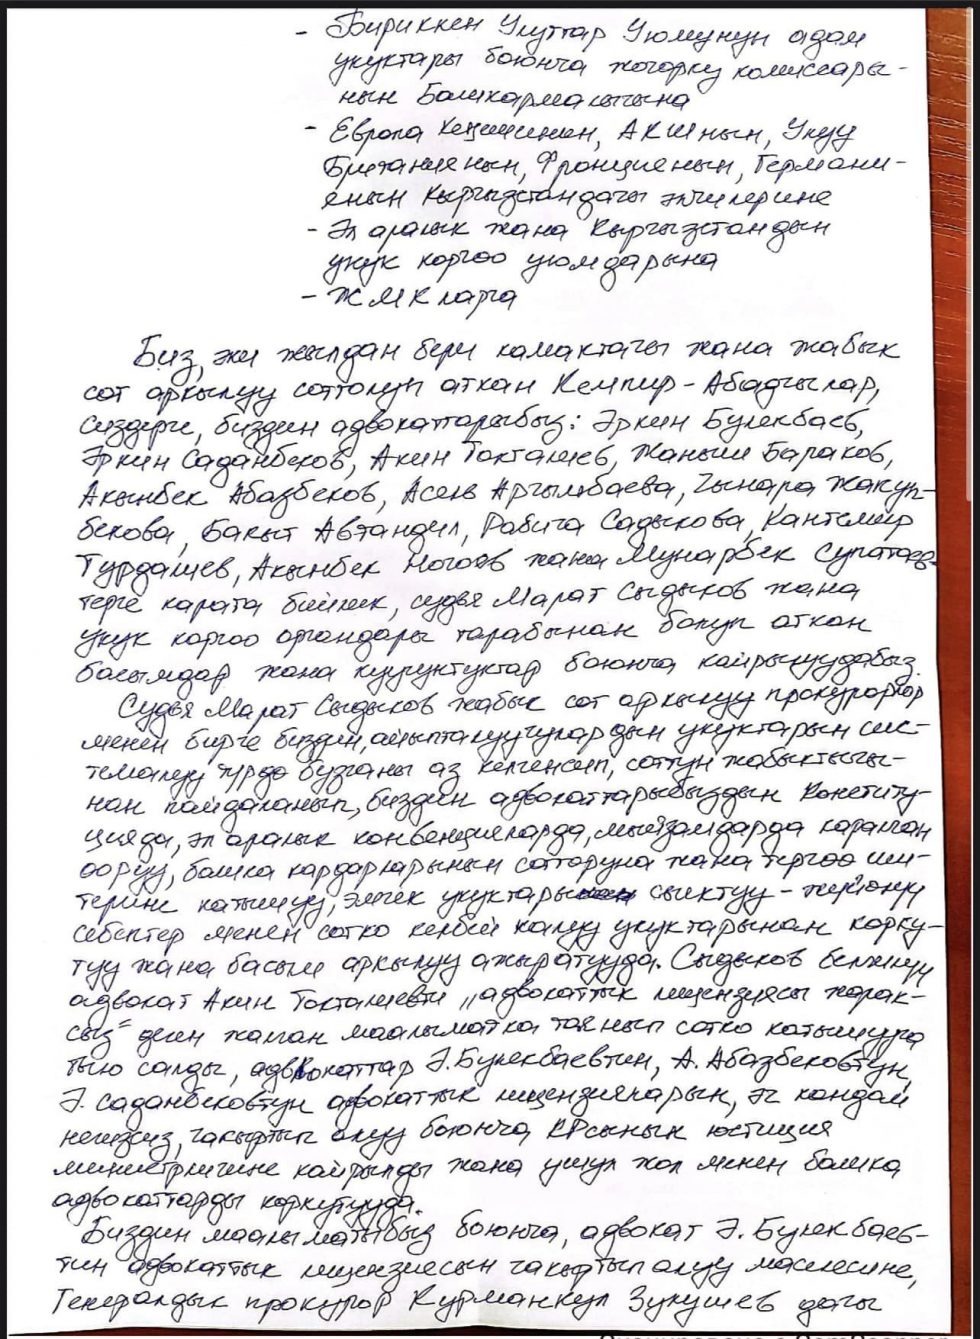 - Бириккен Улуттар Уюмунун адам
укуктары боюнча жогорку комиссары-
нын Башкармалыгына
- Европа Кеңешинин, АКШнын, Улуу
Британиянын, Франциянын, Германи-
янын Кыргызстандагы элчилерине
- Эл аралык жана Кыргызстандын
укук коргоо уюмдарына
- ЖМКларга
Биз, эки жылдан бери камактагы жана жабык
сот аркылуу соттолуп аткан Кемпир-Абадчылар,
сиздерге, биздин адвокаттарыбыз: Эркин Булекбаев,
Эркин Саданбеков, Акин Токталиев, Жаныш Бараков,
Акынбек Абазбеков, Асель Аргымбаева, Чынара Жакуп-
бекова, Бакыт Автандил, Рабига Садыкова, Кантемир
Турдалиев, Акынбек Ногоев жана Мунарбек Супатаев-
терге карата бийлик, судья Марат Сыдыков жана
укук коргоо органдары тарабынан болуп аткан
басымдар жана куугунтуктар боюнча кайрылуудабыз.
Судья Марат Сыдыков жабык сот аркылуу прокурорлор
менен бирге биздин, айыпталуучулардын укуктарын сис-
темалуу түрдө бузганы аз келгенсип, соттун жабыктыгы-
нан пайдаланып, биздин адвокаттарыбыздын Конститу-
цияда, эл аралык конвенцияларда, мыйзамдарда каралган
ооруу, башка кардарларынын соттаруна жана тергөө иш-
терине катышуу, эмгек укуктары сыяктуу - жүйөлүү
себептер менен сотко келбей калуу укуктарынан корку-
туу жана басым аркылуу ажыратууда. Сыдыков белгилүү
адвокат Акин Токталиевти „адвокаттык лицензиясы жарак-
сыз" деген жалган маалыматка таянып сотко катышууга
тыю салды, адвокаттар Э.Булекбаевтин, А. Абазбековтун,
Э. Саданбековтун адвокаттык лицензияларын, эч кандай
негизсиз, чакыртып алуу боюнча КРсынын юстиция
министрлигине кайрылды жана ушул жол менен башка
адвокаттарды коркутууда.
Биздин маалыматыбыз боюнча, адвокат Э. Булекбаев-
тин адвокаттык лицензиясын чакыртып алуу маселесине,
Генералдык прокурор Курманкул Зулушев дагы